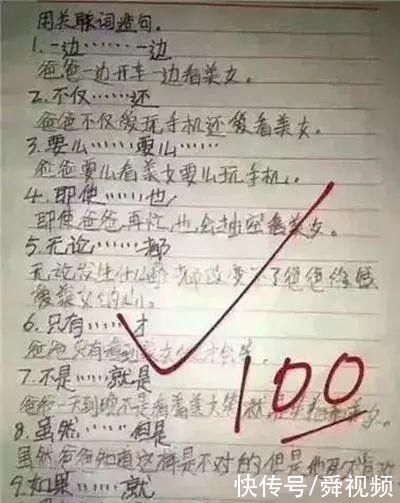 用关联词造句.
1.一边……一边
爸爸一边开车一边看美女。
2.不仅……还
爸爸不仅爱玩手机还爱看美女。
3.要么……要么……
爸爸要么看美女要么玩手机。
4.即使……也
即使爸爸再忙,也会抽空看美女。
5.无论……都
无论发生什么 都改变不了爸爸
爱美女的心。
6.只有……才
爸爸只有看到美女 才会笑。
7.不是……就是
爸爸一天到晚不是看着美女笑就是
8.虽然……但是
虽然爸爸知道这样是不对的但是他
9.如果……就
100
快传号/舜视频